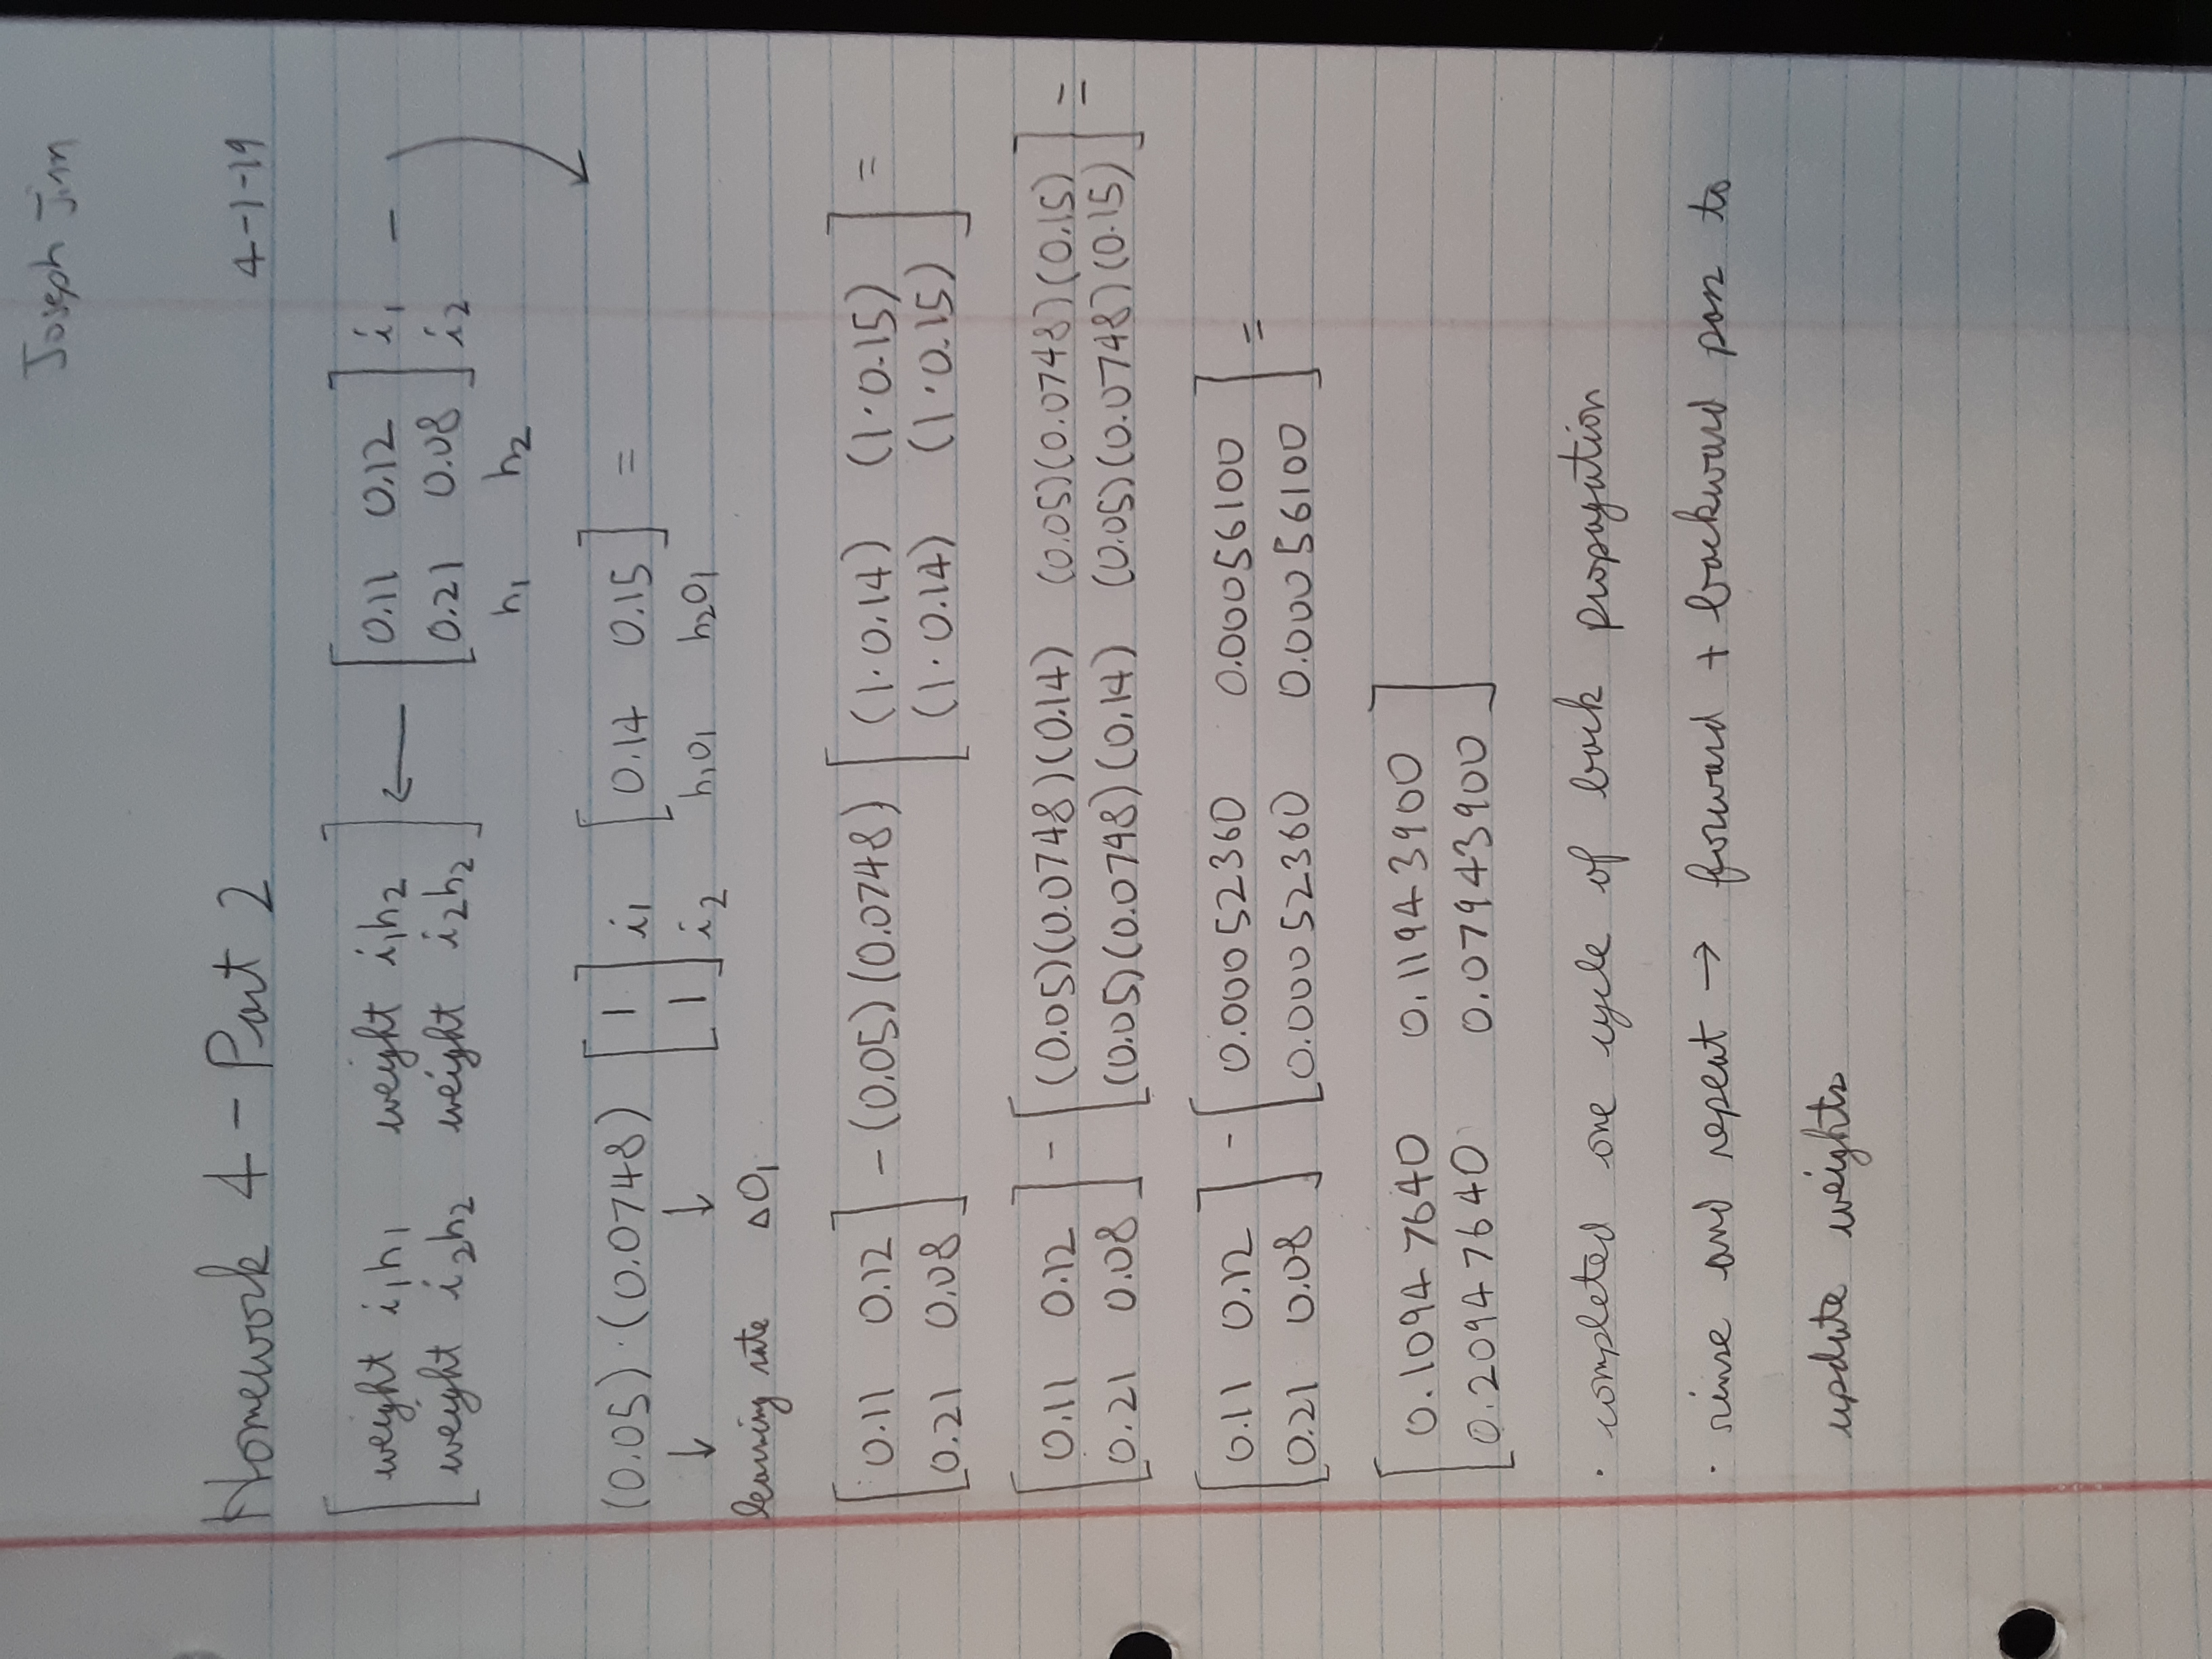 Joseph Jinn
Homework 4 - Part 2 4-1-19
[ weight i₁h₁ weight i₁h₂ ] ← [ 0.11 0.12 ] i₁ -
[ weight i₂h₂ weight i₂h₂ ] [ 0.21 0.08 ] i₂
h₁ h₂
(0.05) · (0.0748) [ 1 ] i₁ [ 0.14 0.15 ] =
↓ ↓ [ 1 ] i₂ h₁O₁ h₂O₁
learning rate ΔO₁
[ 0.11 0.12 ] - (0.05)(0.0748) [ (1·0.14) (1·0.15) ] =
[ 0.21 0.08 ] [ (1·0.14) (1·0.15) ]
[ 0.11 0.12 ] - [ (0.05)(0.0748)(0.14) (0.05)(0.0748)(0.15) ] =
[ 0.21 0.08 ] [ (0.05)(0.0748)(0.14) (0.05)(0.0748)(0.15) ]
[ 0.11 0.12 ] - [ 0.00052360 0.00056100 ] =
[ 0.21 0.08 ] [ 0.00052360 0.00056100 ]
[ 0.10947640 0.11943900 ]
[ 0.20947640 0.07943900 ]
· completed one cycle of back propagation
· rinse and repeat → forward + backward pass to
update weights